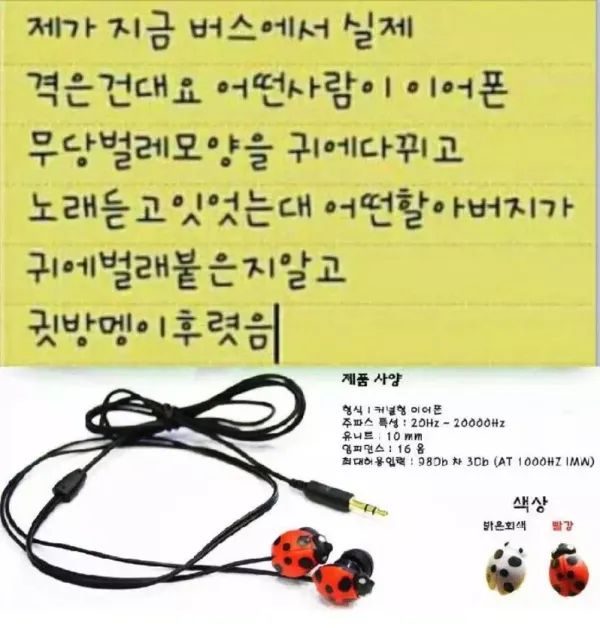 제가 지금 버스에서 실제
격은건대요 어떤사람이 이어폰
무당벌레모양을 귀에다뀌고
노래듣고잇엇는대 어떤할아버지가
귀에벌래붙은지알고
귓방멩이후렷음
제품 사양
형식 : 커널형 이어폰
주파스 특성 : 20Hz ~ 20000Hz
유니트 : 10 mm
임피던스 : 16 옴
최대허용입력 : 98Db 차 3Db (AT 1000HZ 1MW)
색상
밝은회색 빨강